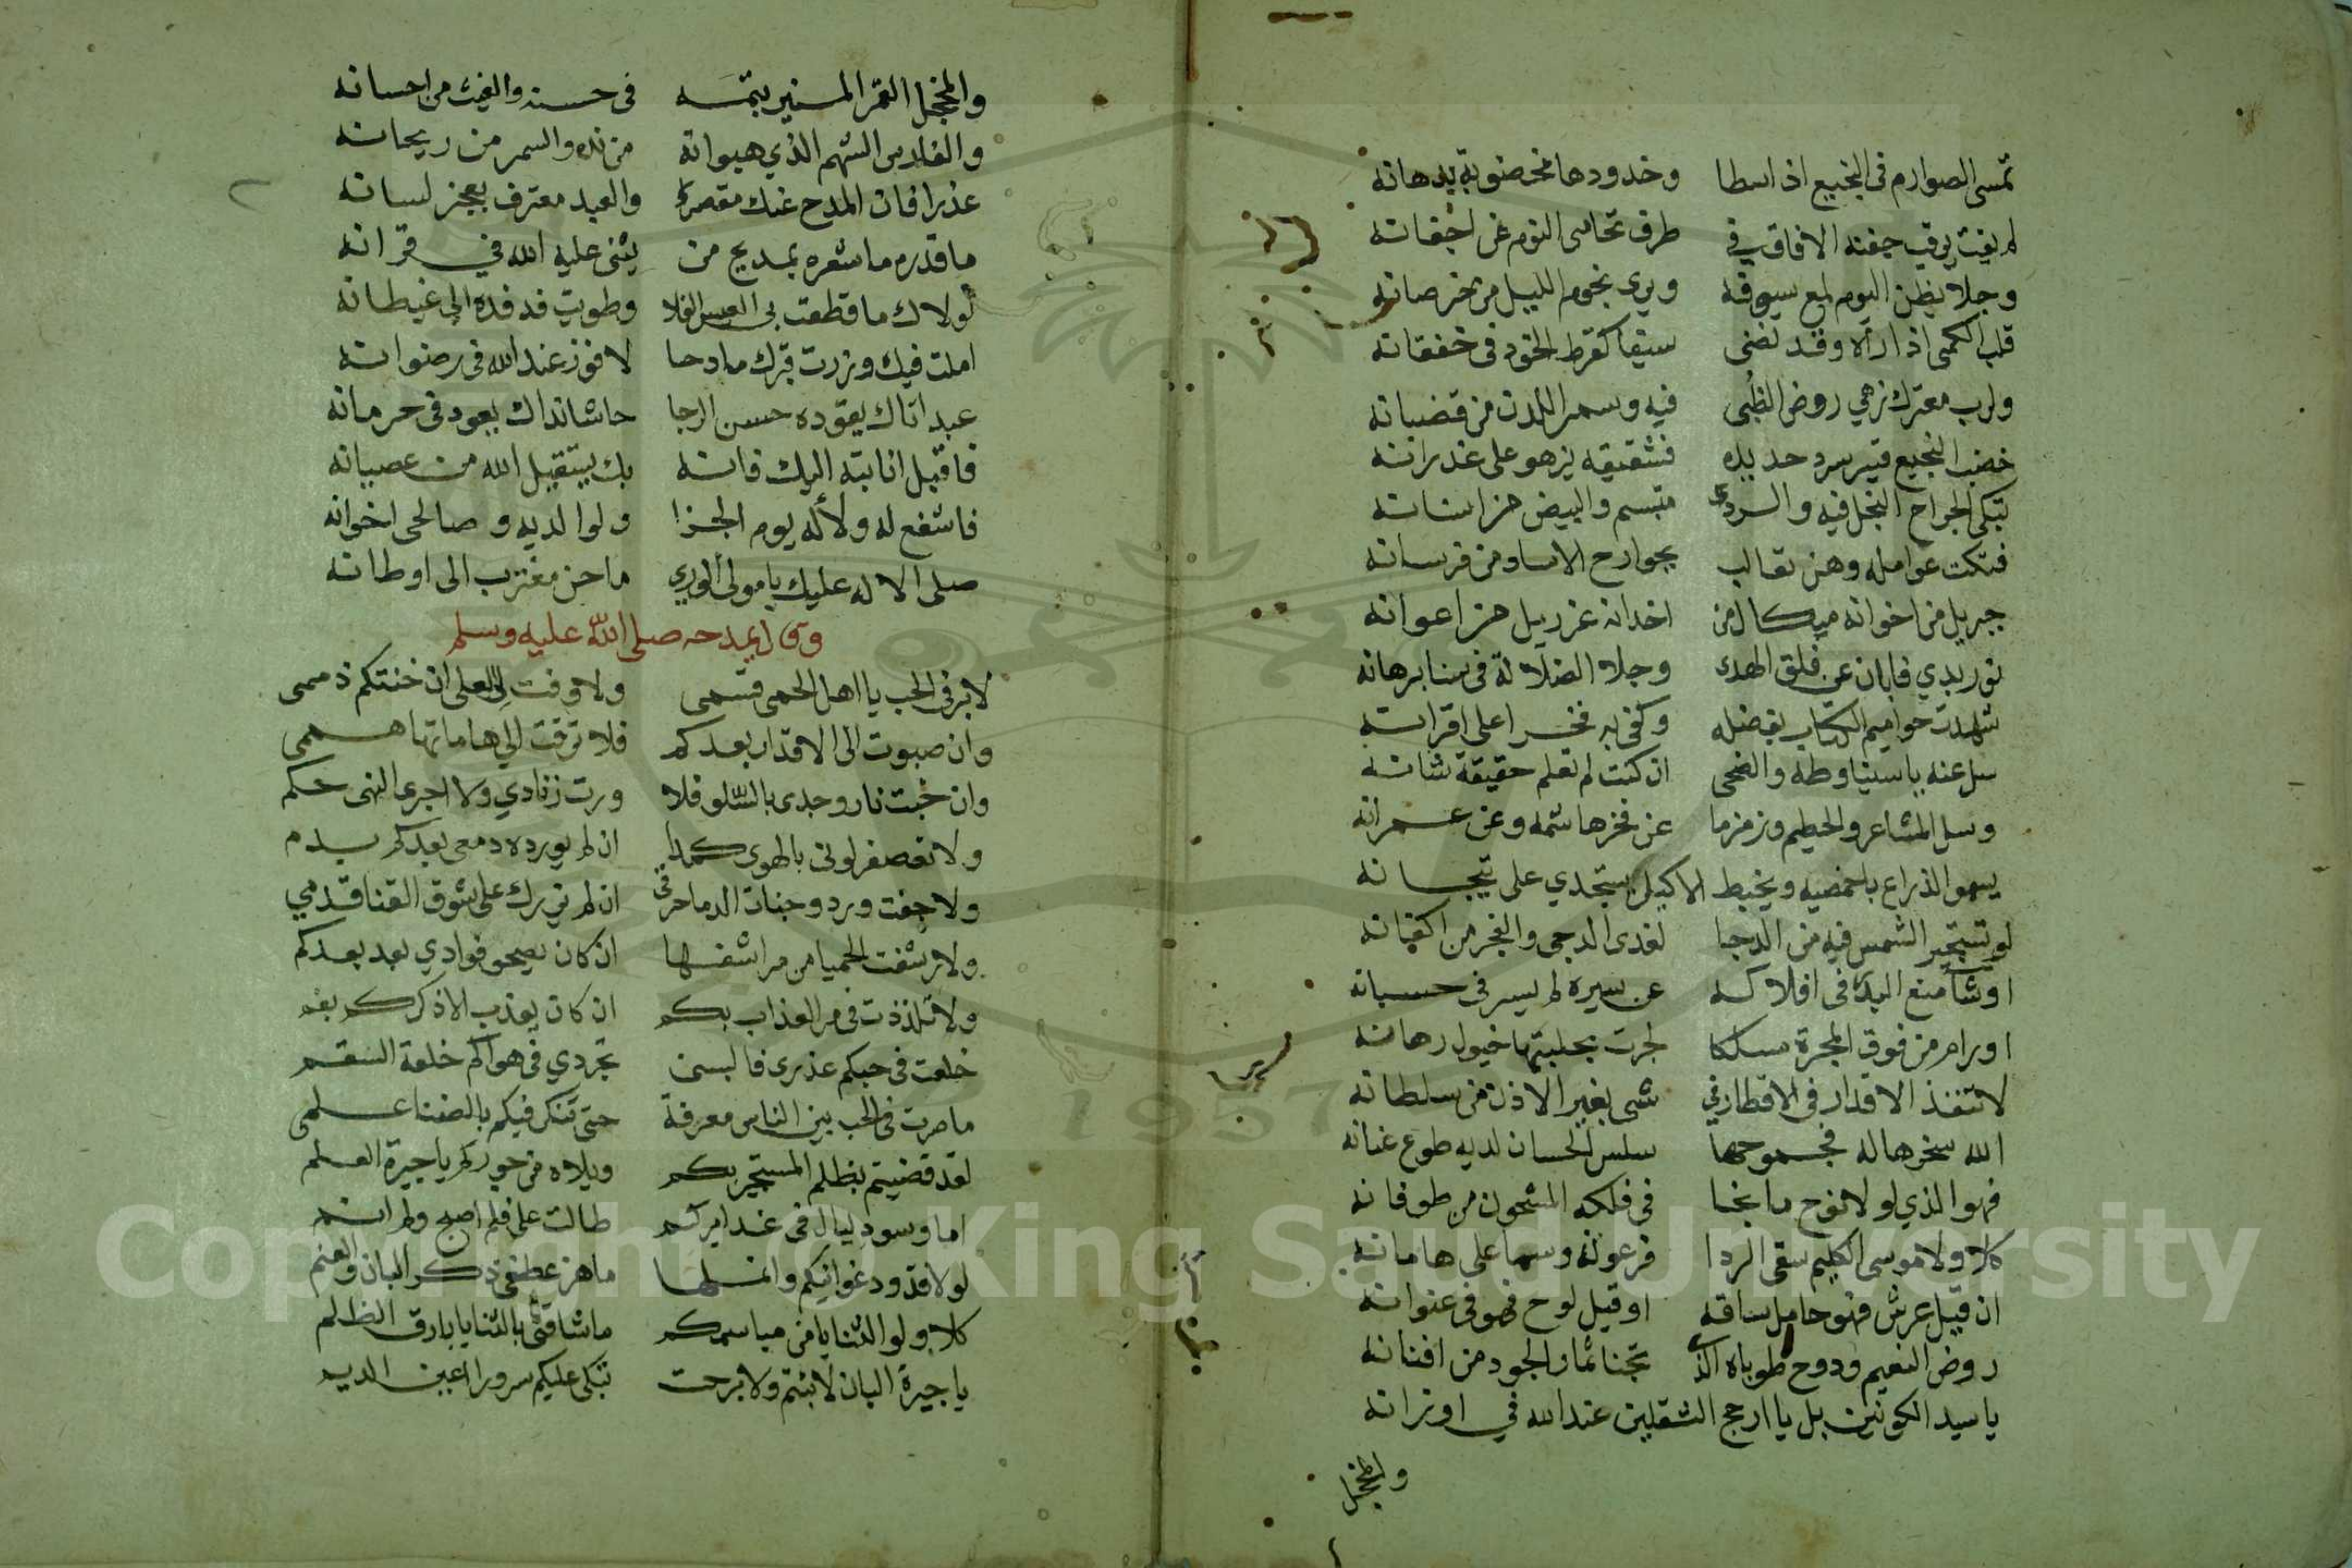 تمسى الصوارم فى النجيع اذا سطا وخدودها مخضوبة بدهانه
لم يغت يرقب جفنه الافاق فى طرف تحامى النوم عن اجفانه
وجلا يظن اليوم لمع سيوفه ويرى نجوم الليل من خرصانه
قلب الكمى اذا رآه وقد نضى سيفا كقرط الخود فى خفقانه
ولرب معترك زهي روض الظبى فيه وسمر اللدن من قضبانه
خضب النجيع قتير سرد حديده فشقيقه يزهو على غدرانه
تبكى الجراح النجل فيه والردى متبسم والبيض من اسنانه
فتكت عوامله وهن ثعالب بجوارح الاساد من فرسانه
جبريل من اخوانه ميكال من اخدانه عزريل من اعوانه
نور بدي فابان عن فلق الهدى وجلا الضلالة فى سنا برهانه
شهدت حواميم الكتاب بفضله وكفى به فخرا على اقرانه
سل عنه ياسينا وطه والضحى ان كنت لم تعلم حقيقة شانه
وسل المشاعر والحطيم وزمزما عن فخر هاشمه وعن عمرانه
يسمو الذراع باخمصيه ويخبط الاكليل يستجدي على تيجانه
لو تستجير الشمس فيه من الدجا لغدى الدجى والفجر من اكفانه
او شا منع البدر فى افلاكه عن سيره لم يسر فى حسبانه
او رام من فوق المجرة مسلكا لجرت بحلبتها خيول رهانه
لا تنفذ الاقدار فى الاقطار فى شى بغير الاذن من سلطانه
الله سخرها له فجموحها سلس الحسان لديه طوع عنانه
فهو الذي لولاه نوح ما نجا فى فلكه المشحون من طوفانه
كلا ولا موسى الكليم سقى الردا فرعونه وسما على هامانه
ان قيل عرش فهو حامل ساقه او قيل لوح فهو فى عنوانه
روض النعيم ودوح طوباه الذى تجنا ثمار الجود من افنانه
يا سيد الكونين بل يا ارجح الثقلين عند الله فى اوزانه
والمخجل
والمخجل القمر المنير بتمه فى حسنه والغيث من احسانه
والفارس الشهم الذي هبواته من نده والسمر من ريحانه
عذرا فان المدح عنك مقصر والعبد معترف بعجز لسانه
ما قدره ما شعره بمديح من يثنى عليه الله فى قرانه
لولاك ما قطعت بى العيس الفلا وطويت فدفده الى غيطانه
املت فيك وزرت قبرك مادحا لافوز عند الله فى رضوانه
عبد اتاك يقوده حسن الرجا حاشا نداك يعود فى حرمانه
فاقبل انابته اليك فانه بك يستقيل الله من عصيانه
فاشفع له ولآله يوم الجزا ولوالديه وصالحى اخوانه
صلى الاله عليك يا مولى الورى ما حن مغترب الى اوطانه
وقال يمدحه صلى الله عليه وسلم
لا بر فى الحب يا اهل الحمى قسمى ولا وفت للعلى ان خنتكم ذممى
وان صبوت الى الاقدار بعدكم فلا ترقت الى هاماتها هممى
وان خبت نار وجدى بالسلو فلا ورت زنادي ولا اجرى النهى حكم
ولا تعصفر لونى بالهوى كمدا ان لم يورده دمعى بعدكم بدم
ولا جفت ورد وجنات الدما حرقى ان لم يزرك على شوق القنا قدمي
ولا رشفت الحميا من مراشفها ان كان يصحو فوادي بعد بعدكم
ولا تلذذت فى مر العذاب بكم ان كان يعذب الا ذكركم بفم
خلعت فى حبكم عذرى فالبسنى تجردي فى هواكم خلعة السقم
ما صرت فى الحب بين الناس معرفة حتى تنكر فيكم بالضنا علمى
لقد قضيتم بظلم المستجير بكم ويلاه من جوركم يا جيرة العلم
اما وسود ليال فى غدايركم طالت على فلم اصبح ولم انم
لولا قدود غوانيكم وانملها ما هز عطفى ذكر البان والعنم
كلا ولولا الثنايا من مباسمكم ما شاقنى بالثنايا بارق الظلم
يا جيرة البان لا بنتم ولا برحت تبكى عليكم سرورا اعين الديم
Copyright © King Saud University
1957